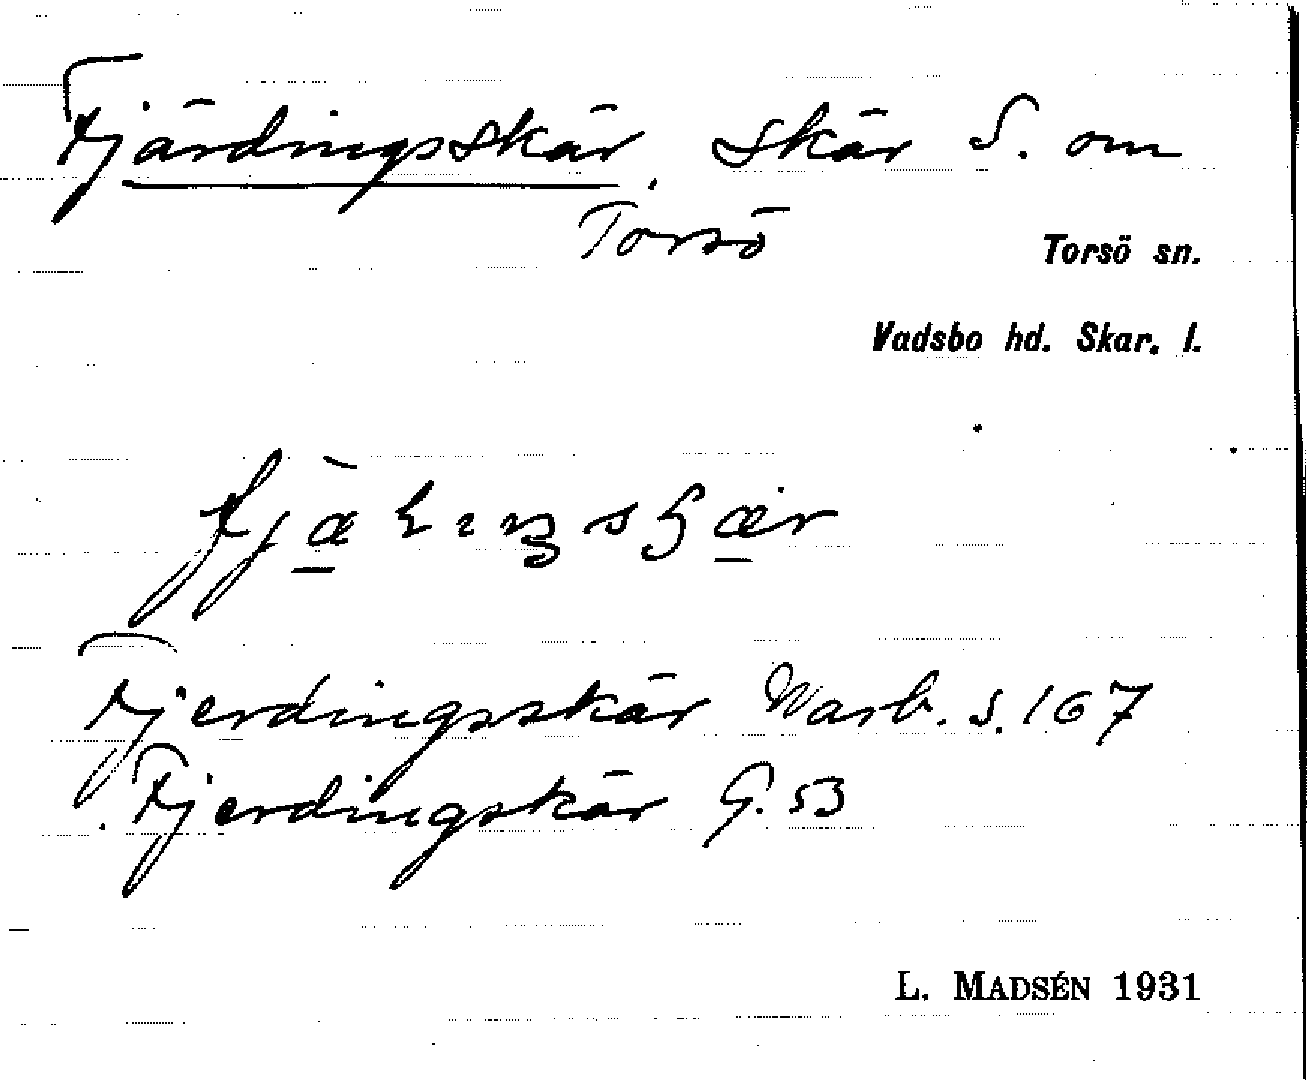 Fjärdingsskär, skär S. om
Torsö
Torsö sn.
Vadsbo hd. Skar. l.
Fjerdingsskär Warb. s. 167
Fjerdingskär G. 53
L. MADSÉN 1931